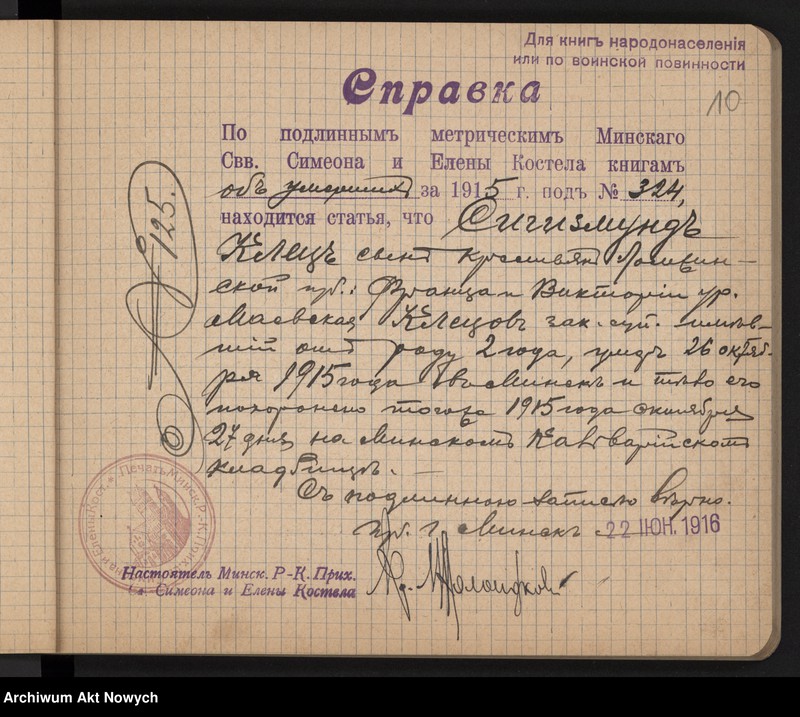 Для книгъ народонаселенія
или по воинской повинности
10
Справка
По подлиннымъ метрическимъ Минскаго
Свв. Симеона и Елены Костела книгамъ
объ умершихъ за 1915 г. подъ № 324,
находится статья, что Сигизмундъ
Клецъ сынъ крестьянъ
ской губ.: Франца и Викторіи ур.
Маевская Клецовъ зак. суп. имѣв-
шій отъ роду 2 года, умеръ 26 октяб-
ря 1915 года въ Минскѣ и тѣло его
похоронено тогоже 1915 года октября
27 дня на Минскомъ Кальварійскомъ
кладбищѣ.
Съ подлинною записью вѣрно.
г. Минскъ 22 ІЮН. 1916
Настоятель Минск. Р-К. Прих.
Св Симеона и Елены Костела
№ 125.
Печать Минск. Р.-К. Прих.
Archiwum Akt Nowych